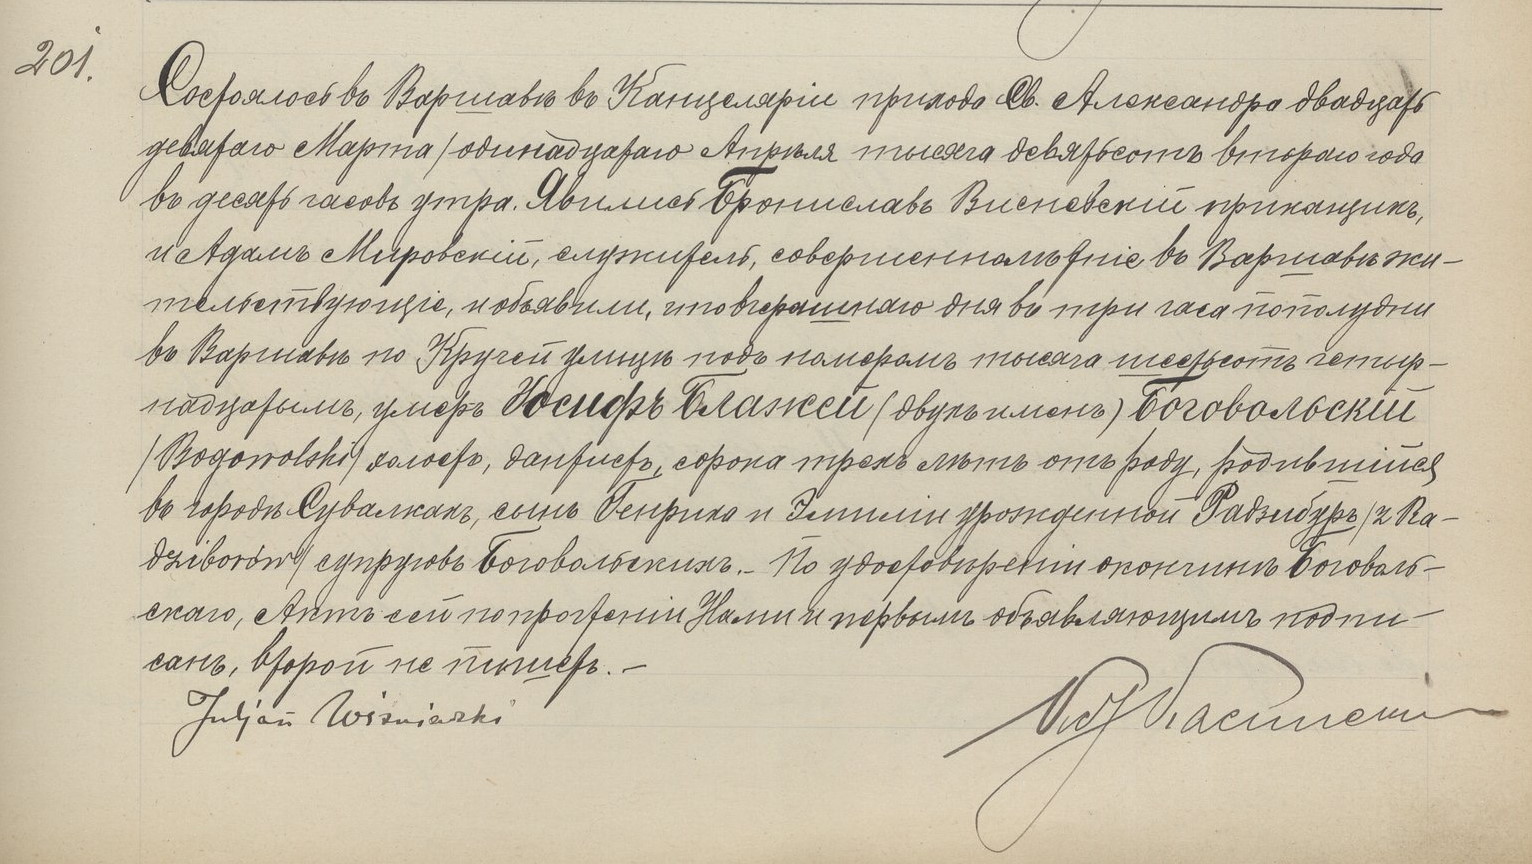 201.
Состоялось въ Варшавѣ въ Канцеляріи прихода Св. Александра двадцать
девятаго Марта / одинадцатаго Апрѣля тысяча девятьсотъ втораго года
въ десять часовъ утра. Явились Брониславъ Висневскій прикащикъ,
и Адамъ Мировскій, служитель, совершеннолѣтніе въ Варшавѣ жи-
тельствующіе, и объявили, что вчерашняго дня въ три часа пополудни
въ Варшавѣ по Кручей улицѣ подъ номеромъ тысяча шестьсотъ четыр-
надцатымъ, умеръ Іосифъ Блажей (двухъ именъ) Боговольскій
/Bogowolski/ холостъ, дантистъ, сорока трехъ лѣтъ отъ роду, родившійся
въ городѣ Сувалкахъ, сынъ Генриха и Эмиліи урожденной Радзибуръ /z Ra-
dziborów/ супруговъ Боговольскихъ. — По удостовѣреніи о кончинѣ Боговоль-
скаго, Актъ сей по прочтеніи Нами и первымъ объявляющимъ подпи-
санъ, второй не пишетъ. —
Juljan Wiśniewski